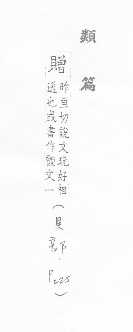 類篇
贈
昨亘切說文玩好相
送也或書作䝺文一
(貝部下．P.225)